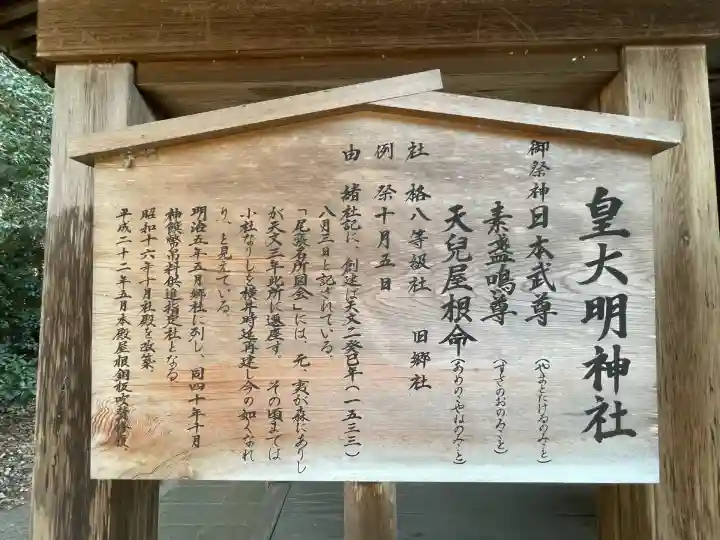 皇大明神社
御祭神 日本武尊（やまとたけるのみこと）
素盞鳴尊（すさのおのみこと）
天兒屋根命（あめのこやねのみこと）
社格 八等級社 旧郷社
例祭 十月五日
由緒 社記に、創建は天文二癸巳年（一五三三）
八月三日と記されている。
「尾張名所図会」には、元、亥が森にありし
が天文三年此所に遷座す。その頃までは
小社なりしを横井時延再建し今の如くなれ
り、と見えている。
明治五年五月郷社に列し、同四十年十月
神饌幣帛料供進指定社となる
昭和十六年十月社殿を改築
平成二十二年五月本殿屋根銅板吹替修復、